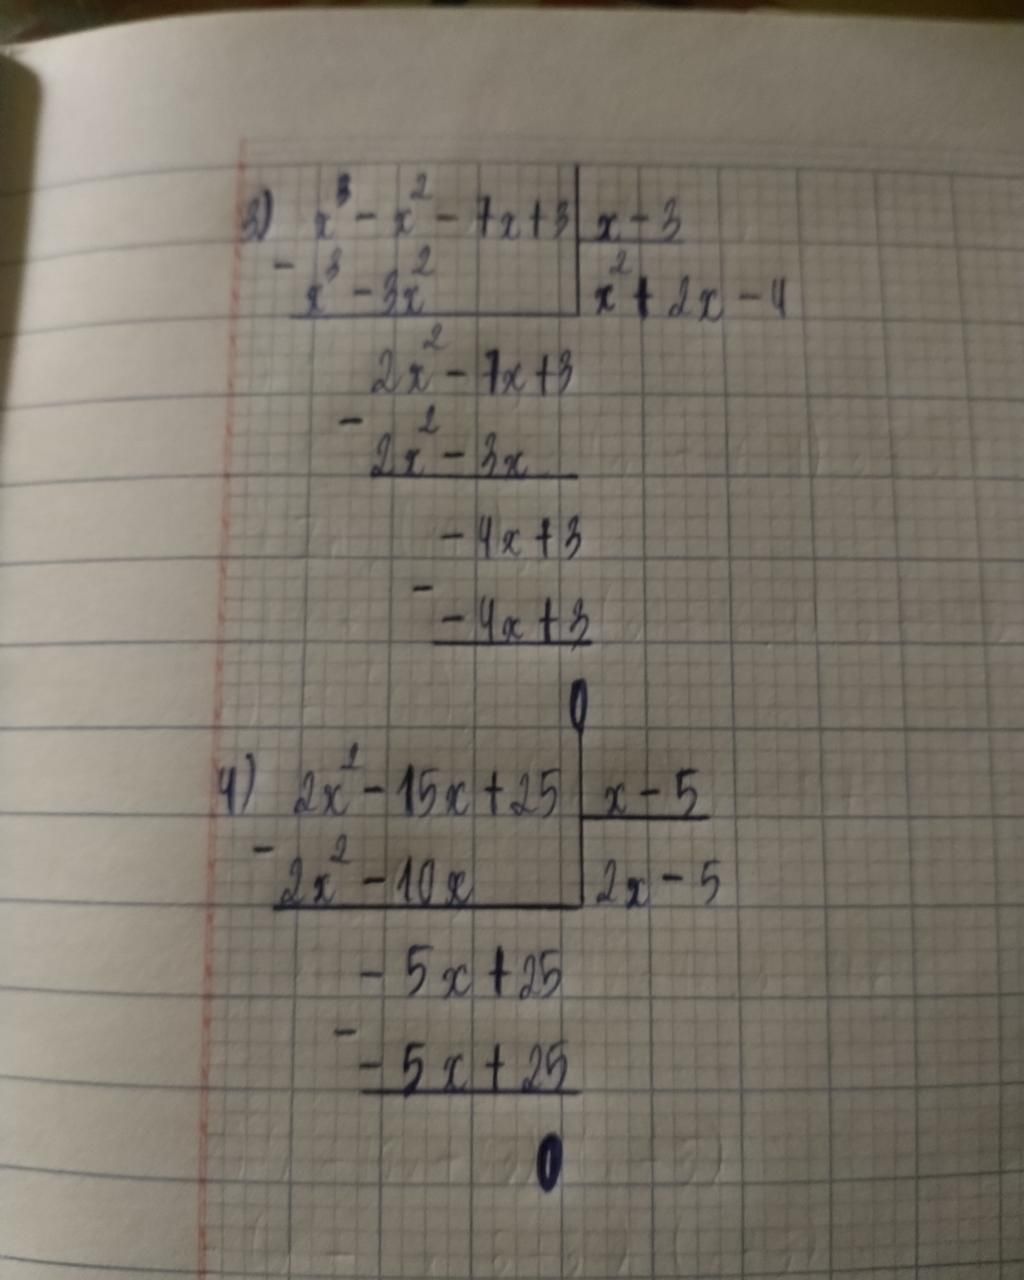 3) x³ - x² - 7x + 3 | x - 3
- x³ - 3x² | x² + 2x - 4
2x² - 7x + 3
- 2x² - 3x
- 4x + 3
- - 4x + 3
0
4) 2x² - 15x + 25 | x - 5
- 2x² - 10x | 2x - 5
- 5x + 25
- - 5x + 25
0